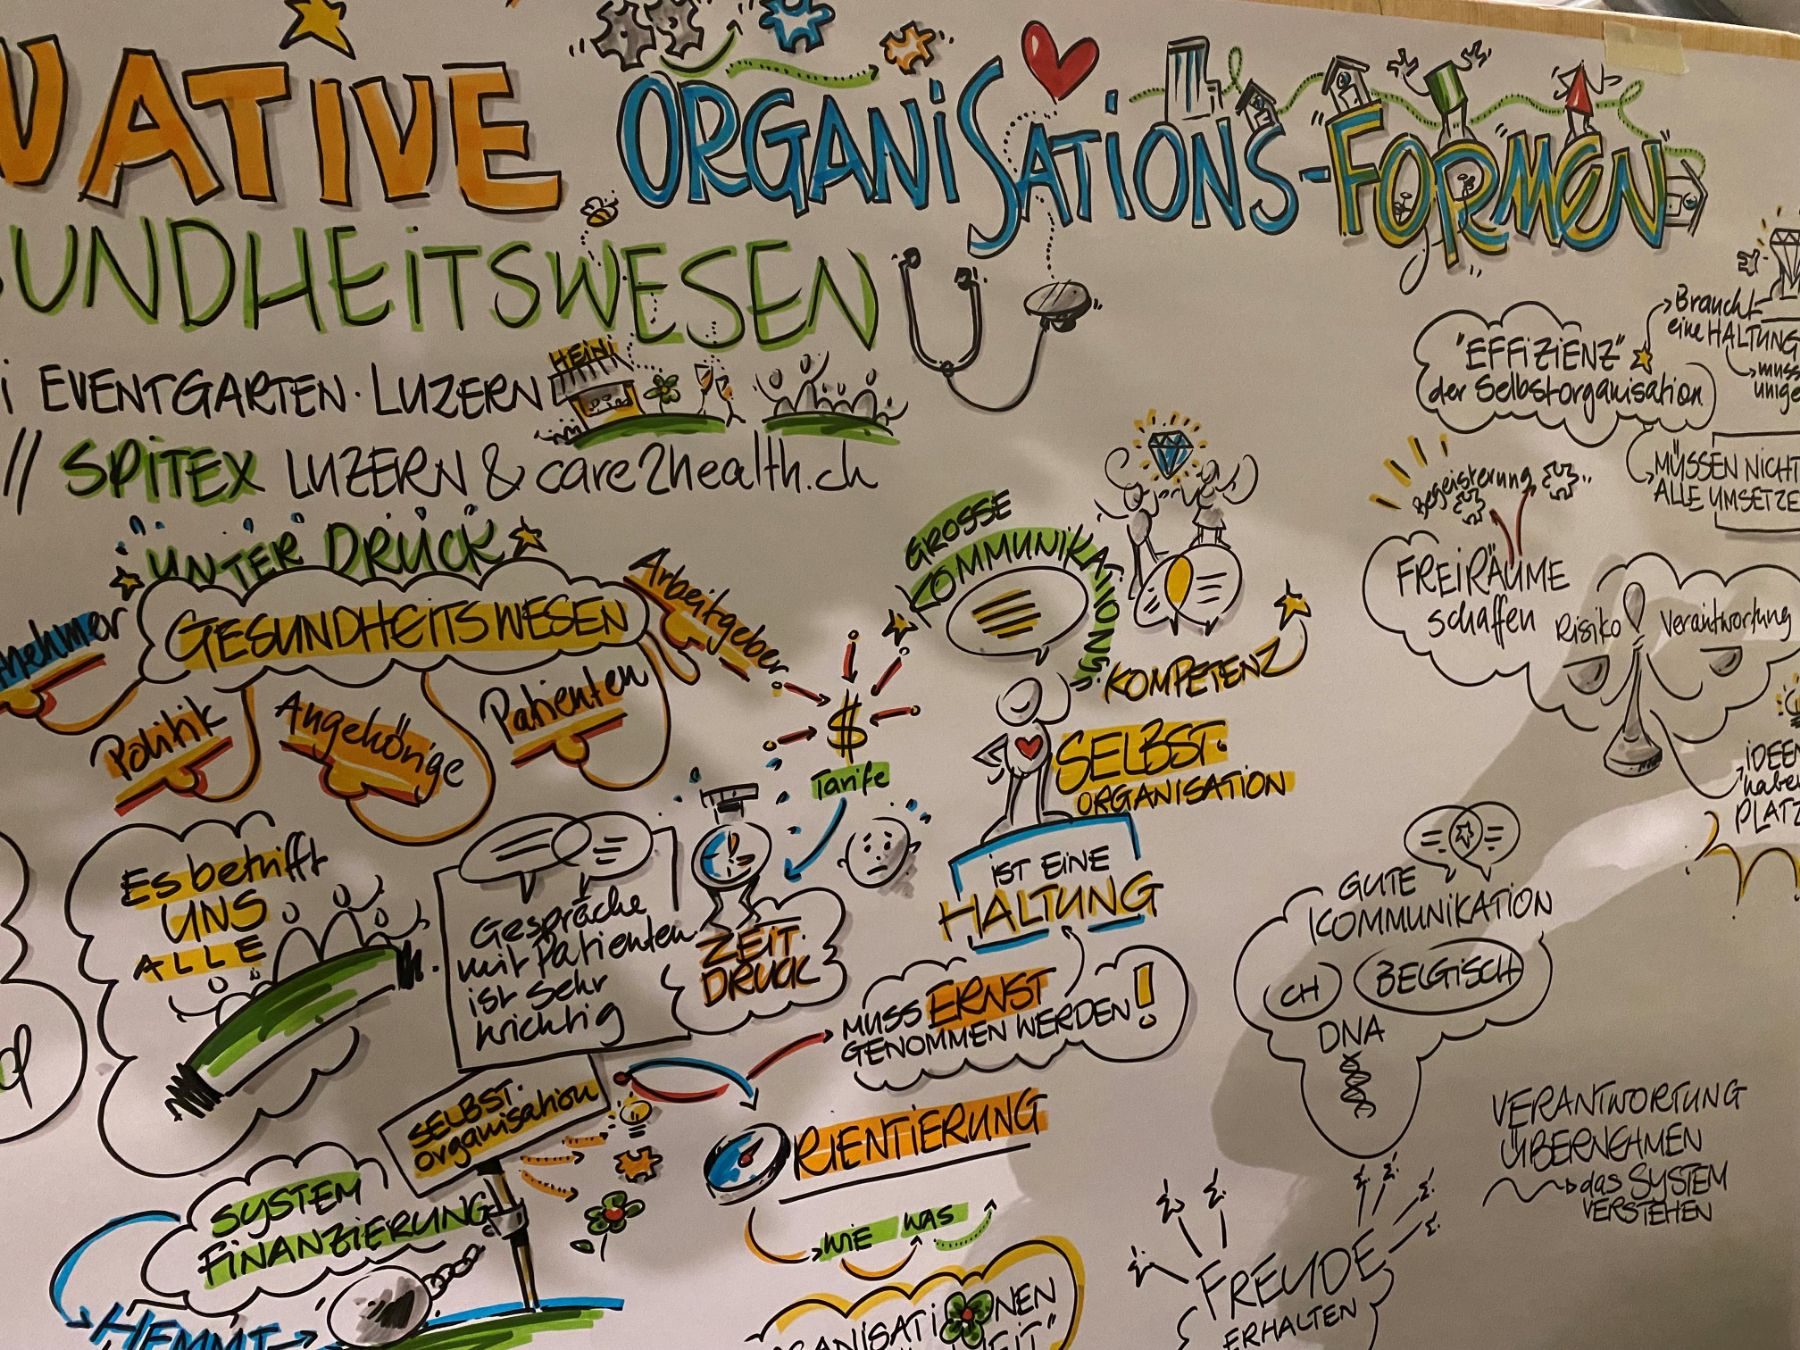 ATIVE ORGANISATIONS-FORMEN
UNDHEITSWESEN
EVENTGARTEN · LUZERN
HEINI
// SPITEX LUZERN & care2health.ch
UNTER DRUCK
GESUNDHEITSWESEN
nehmer
Politik
Angehörige
Patienten
Arbeitgeber
$
Tarife
Es betrifft
UNS
ALLE
Gespräche
mit Patienten
ist sehr
wichtig
ZEIT
DRUCK
SELBST-
organisation
SYSTEM
FINANZIERUNG
HEMMT
GROSSE
KOMMUNIKATIONS
KOMPETENZ
SELBST-
ORGANISATION
iST EiNE
HALTUNG
MUSS ERNST
GENOMMEN WERDEN!
ORIENTIERUNG
WIE WAS
"EFFIZIENZ"
der Selbstorganisation
Braucht
eine HALTUNG
MÜSSEN NICHT
ALLE UMSETZE
Begeisterung
FREIRÄUME
schaffen
Risiko
Verantwortung
IDEEN
haben
PLATZ
GUTE
KOMMUNIKATION
CH
BELGISCH
DNA
VERANTWORTUNG
ÜBERNEHMEN
das SYSTEM
VERSTEHEN
FREUDE
ERHALTEN